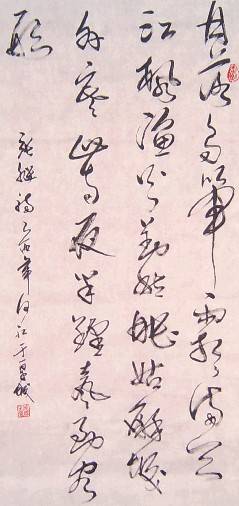 月落烏啼霜滿天
江楓漁火對愁眠姑蘇城
外寒山寺夜半鐘聲到客
船
張繼詩乙酉年